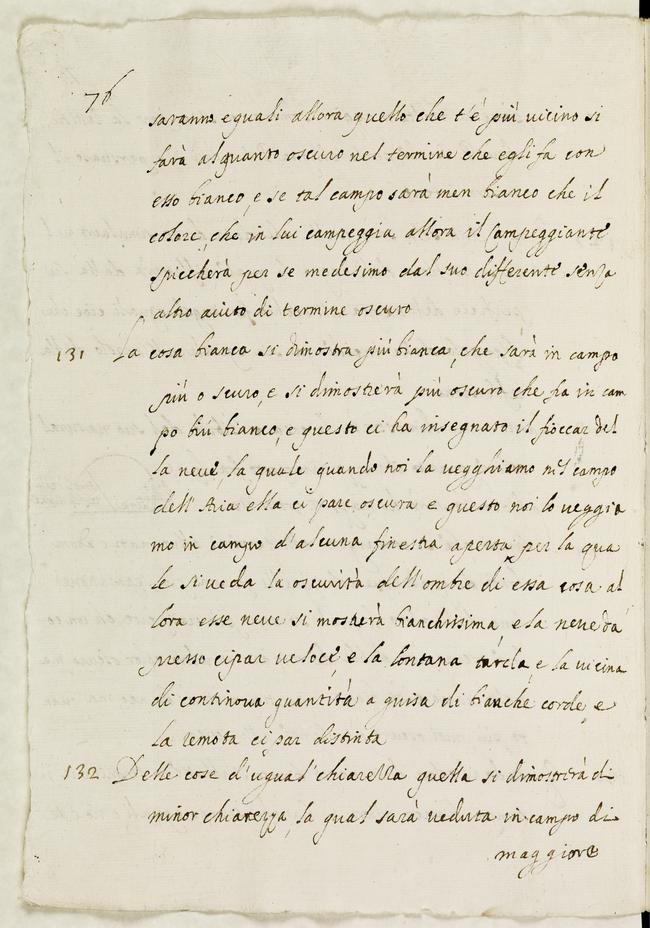 76
saranno eguali allora quello che t'é più vicino si
farà alquanto oscuro nel termine che egli fa con
esso bianco, e se tal campo sarà men bianco che il
colore, che in lui campeggia allora il Campeggiante
spiccherà per se medesimo dal suo differente senza
altro aiuto di termine oscuro
131 La cosa bianca si dimostra più bianca, che sarà in campo
più o scuro, e si dimostrerà più oscuro che fia in cam
po più bianco, e questo ci ha insegnato il fioccar del
la neve, la quale quando noi la vegghiamo nel campo
dell'Aria ella ci pare oscura e questo noi lo veggia
mo in campo d'alcuna finestra aperta per la qua
le si veda la oscurità dell'ombre di essa cosa al
lora esse neve si mostrerà bianchissima e la neve da
presso ci par veloce, e la lontana tarda, e la vicina
di continova quantità a guisa di bianche corde, e
la remota ci par distinta
132 Delle cose d'ugual'chiarezza quella si dimostrerà di
minor chiarezza, la qual sarà veduta in campo di
maggiore